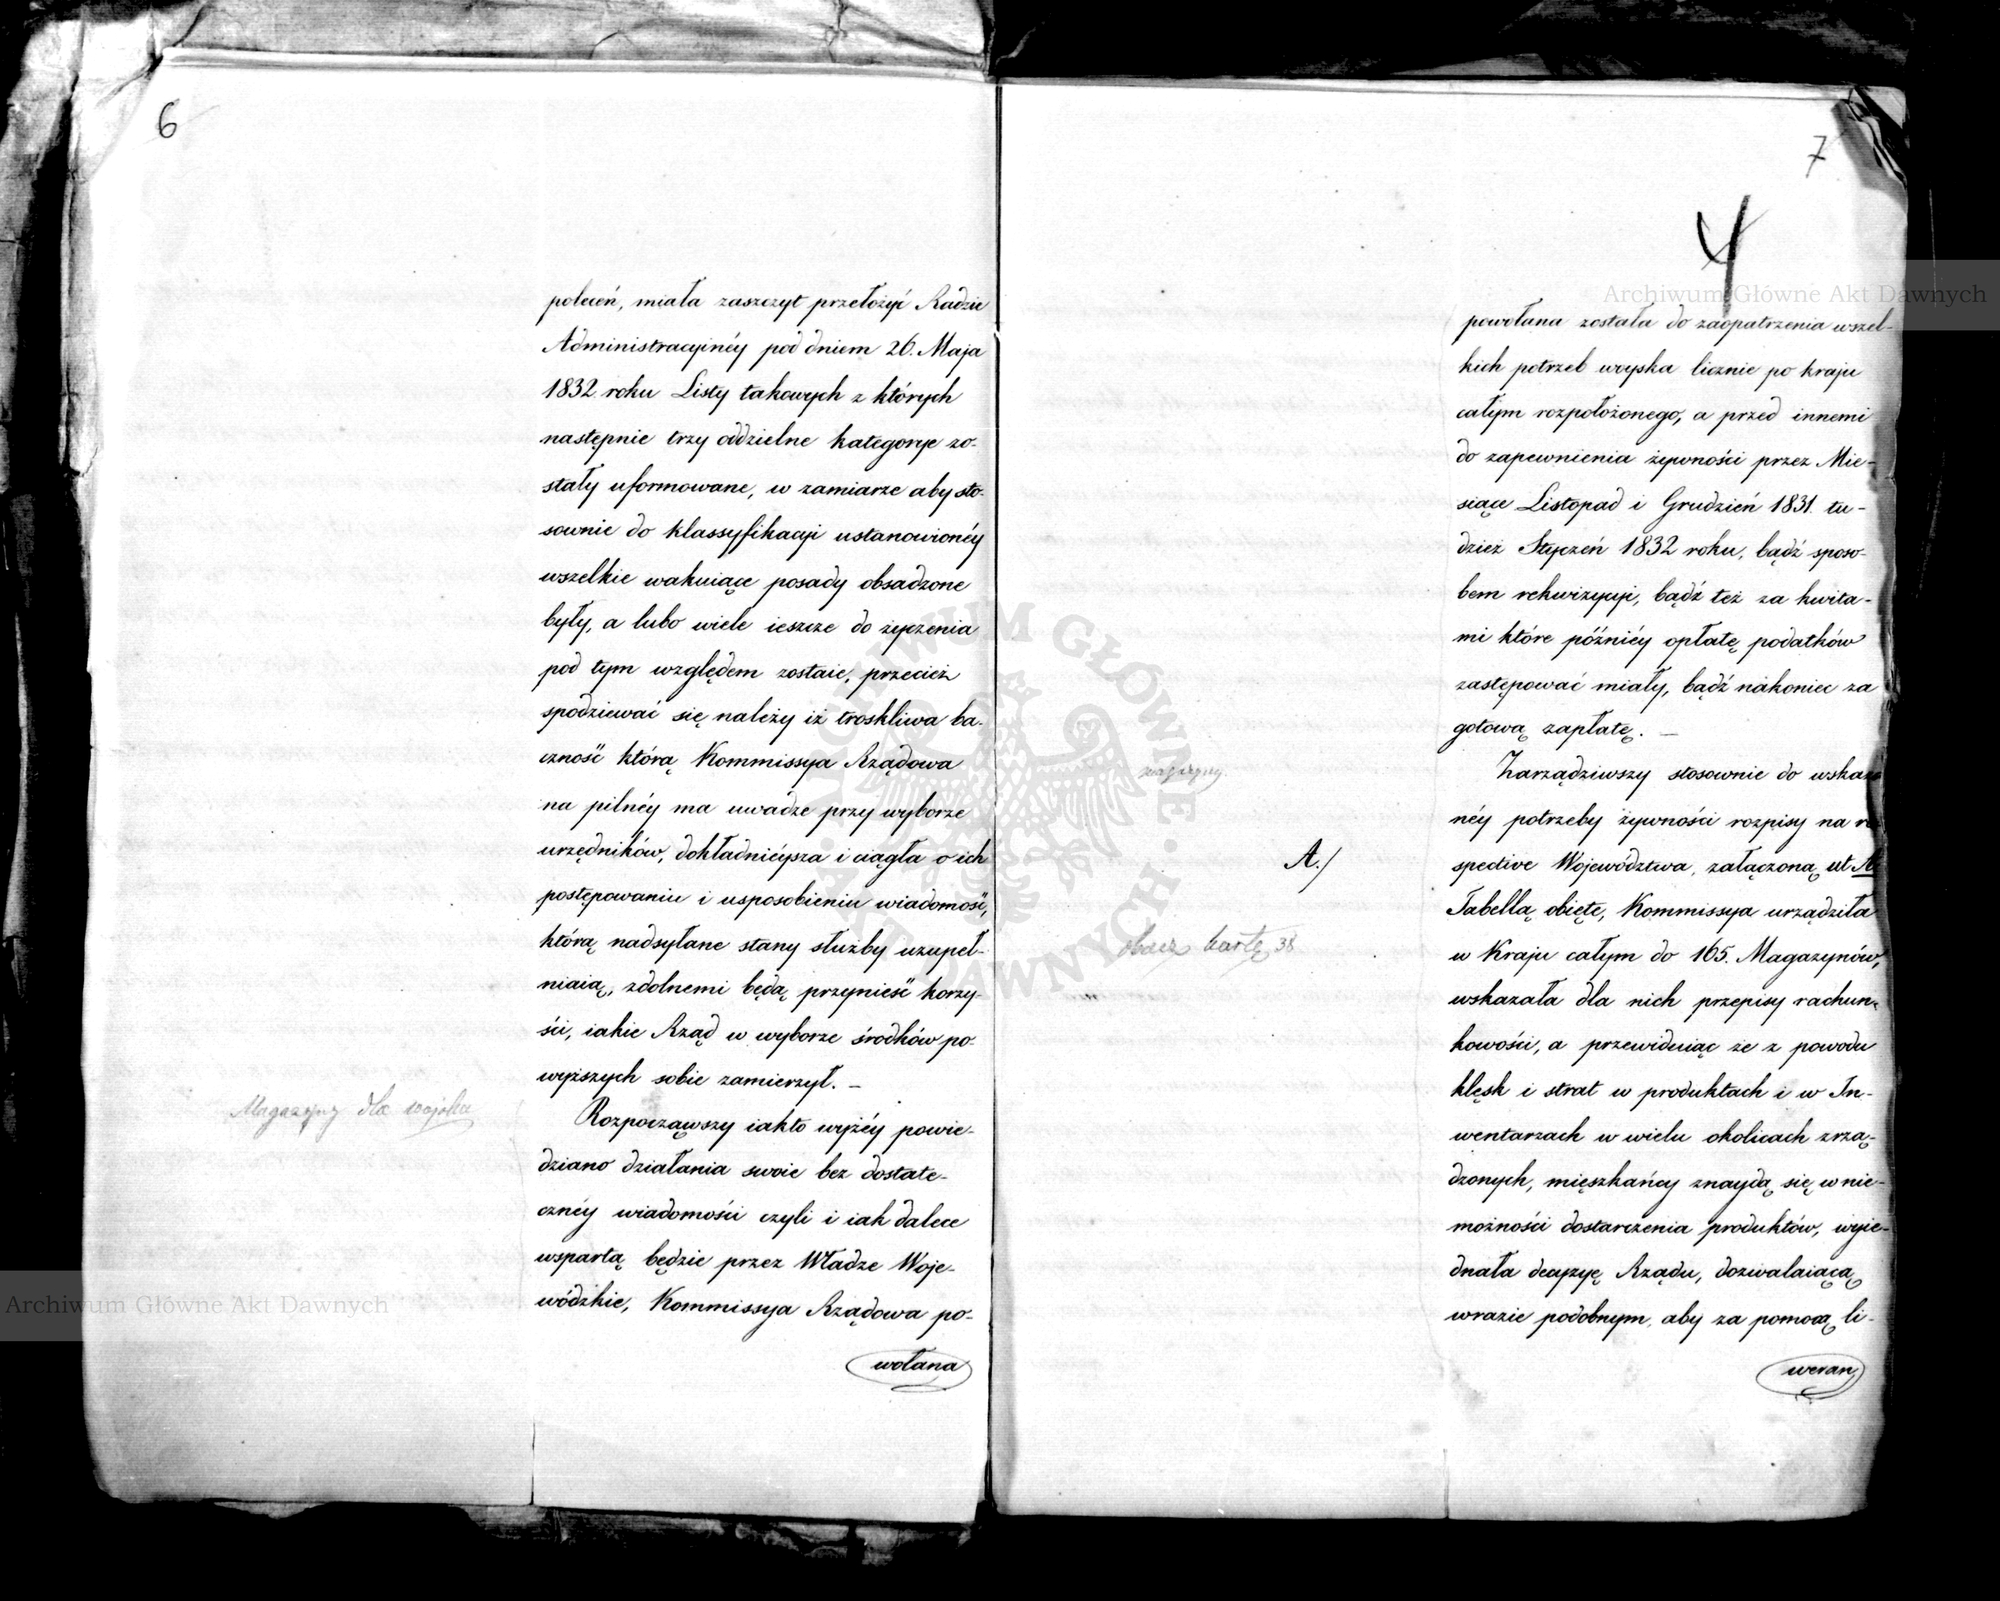 6
poleceń, miała zaszczyt przełożyć Radzie
Administracyinéy pod dniem 26. Maja
1832 roku Listy takowych z których
następnie trzy oddzielne kategorye zo-
stały uformowane, w zamiarze aby sto-
sownie do klassyfikacyi ustanowionéy
wszelkie wakuiące posady obsadzone
były, a lubo wiele ieszcze do życzenia
pod tym względem zostaie, przecież
spodziewać się należy iż troskliwa ba-
czność którą Kommissya Rządowa
na pilnéy ma uwadze przy wyborze
urzędników, dokładnieysza i ciągła o ich
postępowaniu i usposobieniu wiadomość,
którą nadsyłane stany służby uzupeł-
niaią, zdolnemi będą przynieść korzy-
ści, iakie Rząd w wyborze środków po-
wyższych sobie zamierzył. —
Magazyny dla wojska
Rozpocząwszy iakto wyżéy powie-
dziano działania swoie bez dostate-
cznéy wiadomości czyli i iak dalece
wspartą będzie przez Władze Woje-
wódzkie, Kommissya Rządowa po-
wołana
7
4
powołana została do zaopatrzenia wszel-
kich potrzeb woyska licznie po kraju
całym rozpołożonego, a przed innemi
do zapewnienia żywności przez Mie-
siące Listopad i Grudzień 1831. tu-
dzież Styczeń 1832 roku, bądź sposo-
bem rekwizycyi, bądź też za kwita-
mi które późniéy opłatę podatków
zastępować miały, bądź nakoniec za
gotową zapłatę. —
magazyny
Zarządziwszy stosownie do wskaza
néy potrzeby żywności rozpisy na re
A./
spective Województwa, załączoną ut A
Tabellą obięte, Kommissya urządziła
obacz kartę 38
w Kraju całym do 165. Magazynów,
wskazała dla nich przepisy rachun-
kowości, a przewiduiąc że z powodu
klęsk i strat w produktach i w In-
wentarzach w wielu okolicach zrzą-
dzonych, mięszkańcy znaydą się w nie-
możności dostarczenia produktów, wyie-
dnała decyzyę Rządu, dozwalaiącą
wrazie podobnym, aby za pomocą li-
weran
Archiwum Główne Akt Dawnych
Archiwum Główne Akt Dawnych
ARCHIWUM GŁÓWNE AKT DAWNYCH